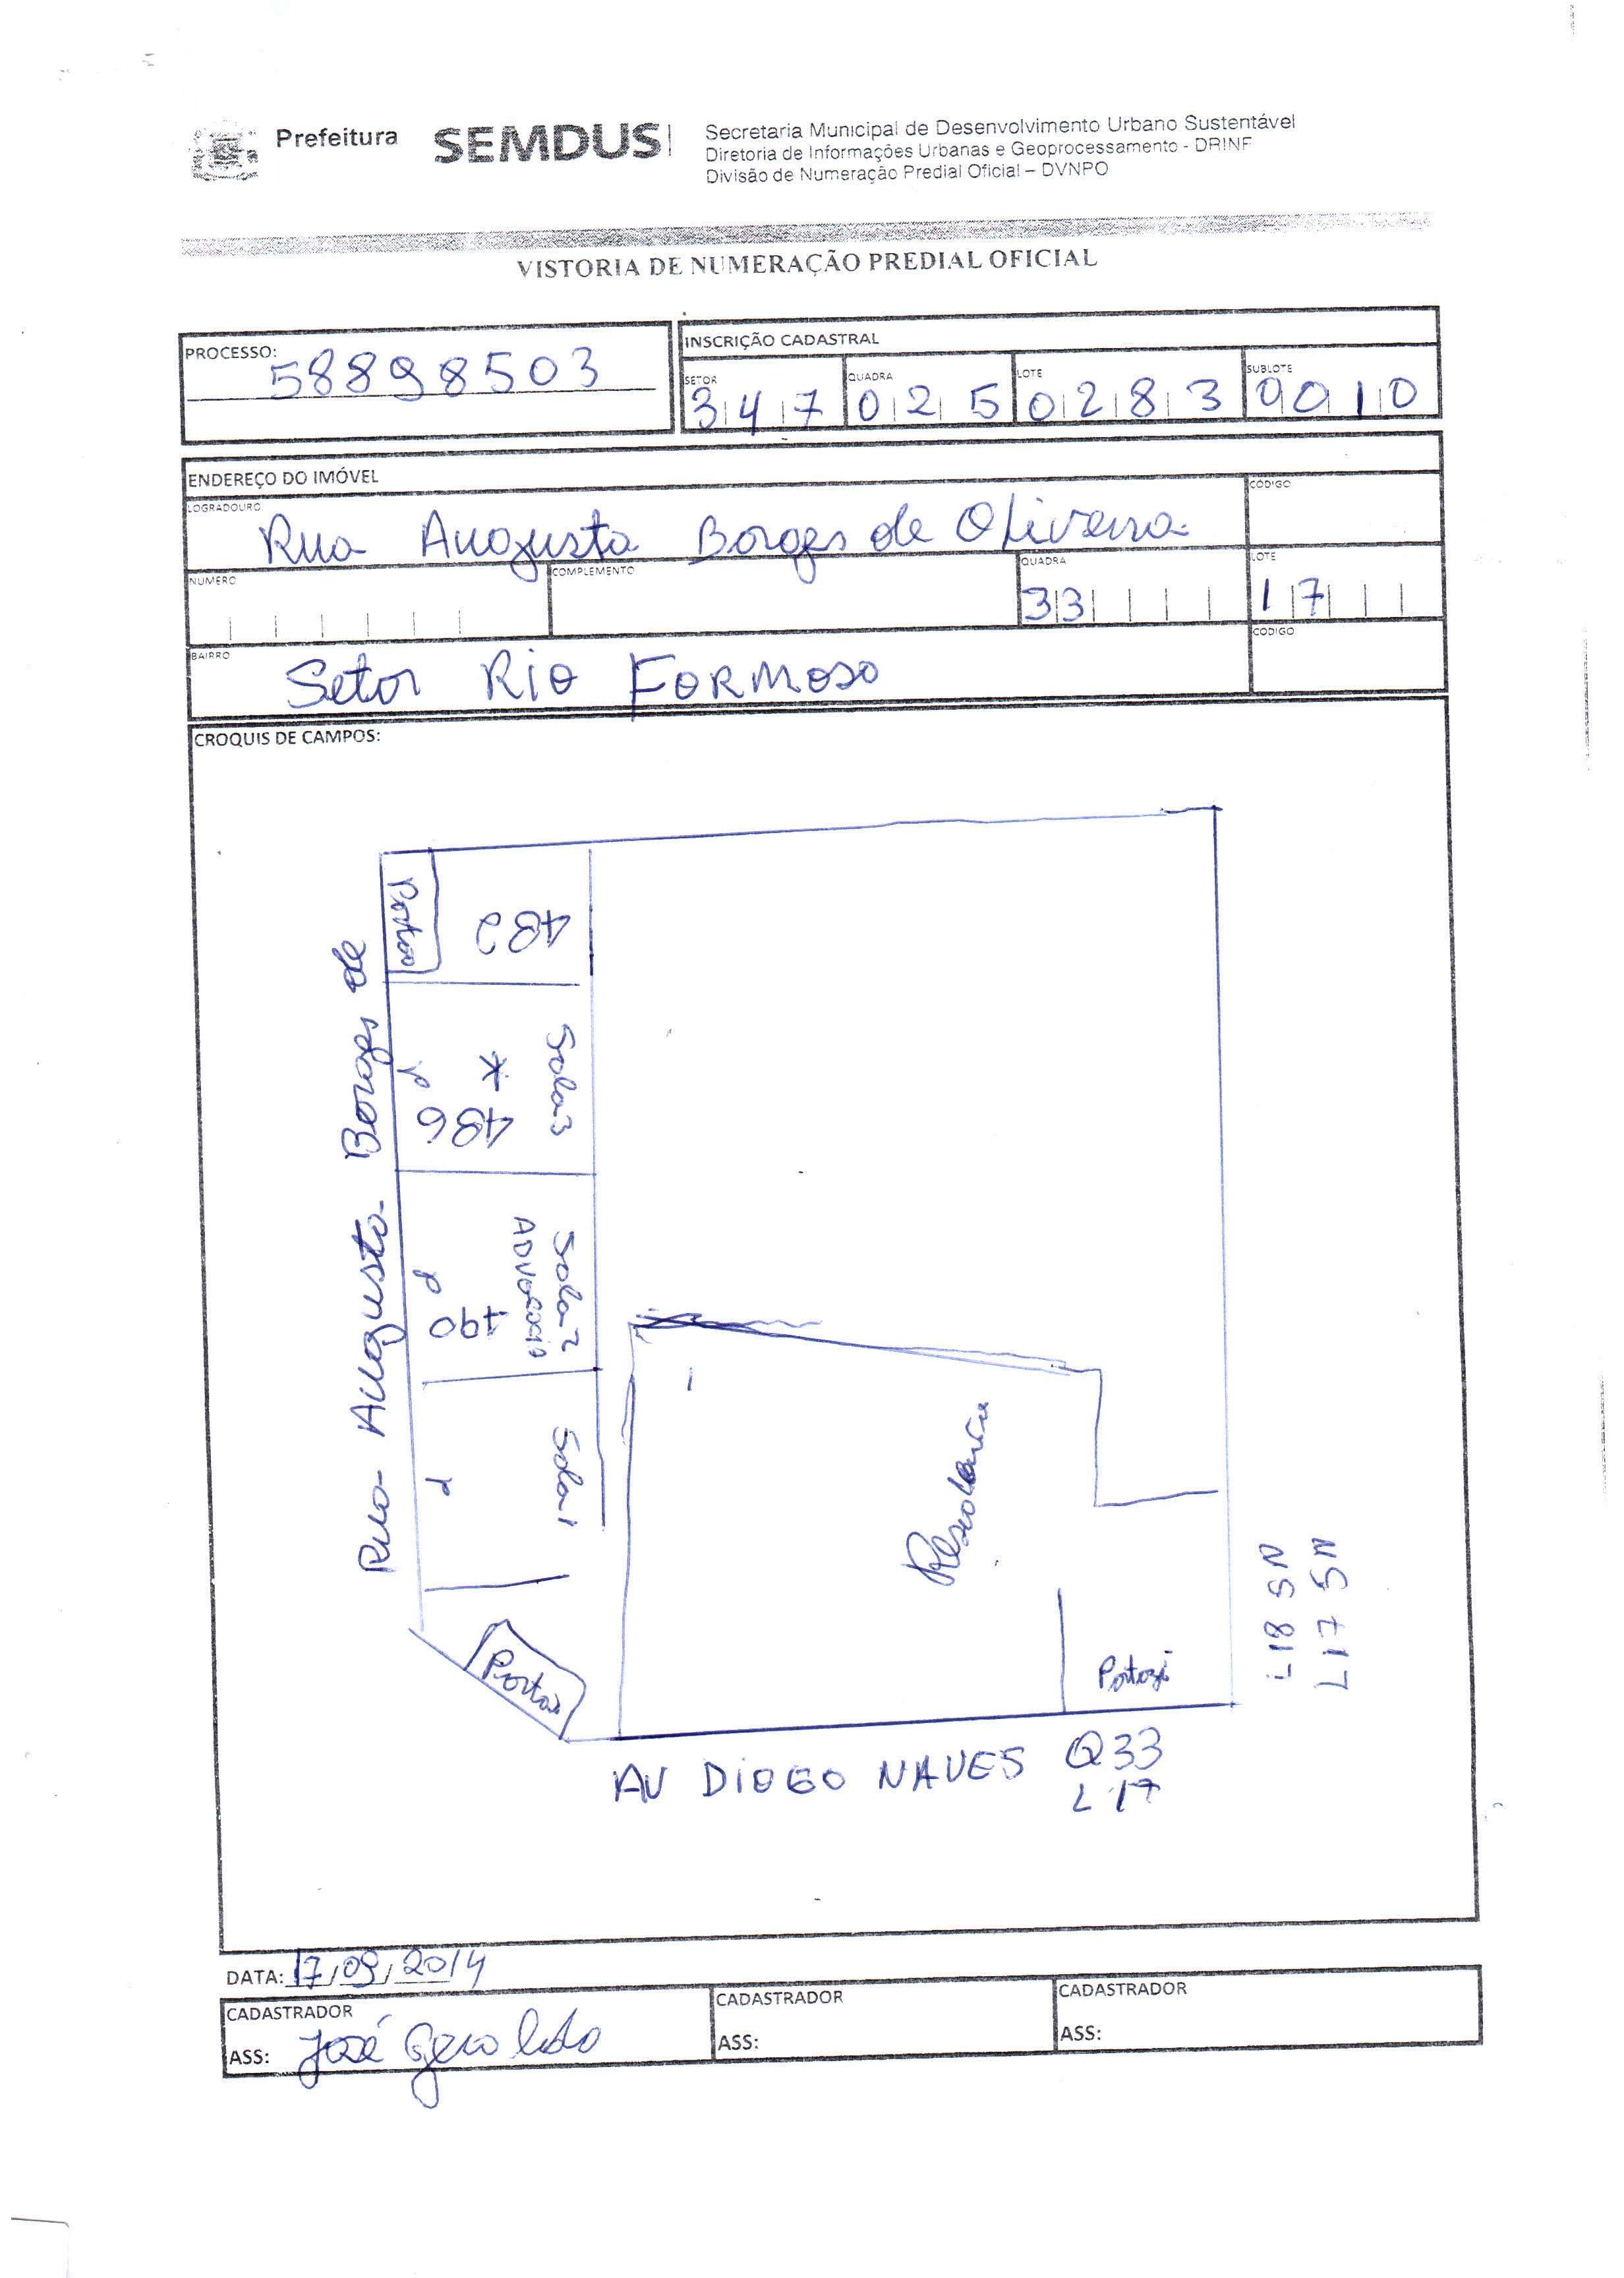 Prefeitura SEMDUS
Secretaria Municipal de Desenvolvimento Urbano Sustentável
Diretoria de Informações Urbanas e Geoprocessamento - DRINF
Divisão de Numeração Predial Oficial – DVNPO
VISTORIA DE NUMERAÇÃO PREDIAL OFICIAL
PROCESSO: 58898503
INSCRIÇÃO CADASTRAL
SETOR 347 QUADRA 025 LOTE 0283 SUBLOTE 0010
ENDEREÇO DO IMÓVEL
LOGRADOURO Rua Augusta Borges de Oliveira CÓDIGO
NÚMERO COMPLEMENTO QUADRA 33 LOTE 17
BAIRRO Setor Rio Formoso CÓDIGO
CROQUIS DE CAMPOS:
Portão
482
Sala 3
*
P
486
Sala 2
ADVOCACIA
P
490
Sala 1
P
Portão
Rua Augusta Borges de
Residência
Portão
L18 SN
L17 SN
AV DIOGO NAVES Q33
L 17
DATA: 17/09/2014
CADASTRADOR
ASS: José Geraldo
CADASTRADOR
ASS:
CADASTRADOR
ASS: